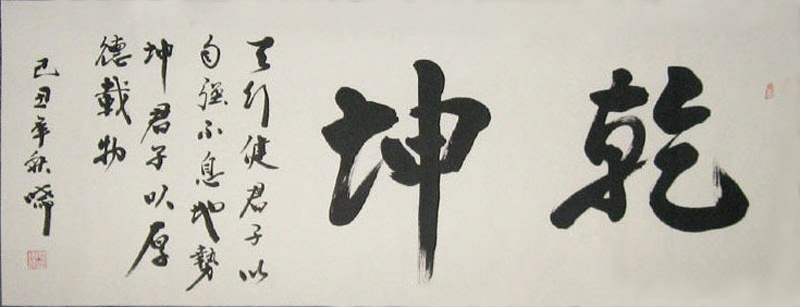 乾坤
天行健君子以
自强不息地勢
坤君子以厚
德載物
己丑年秋